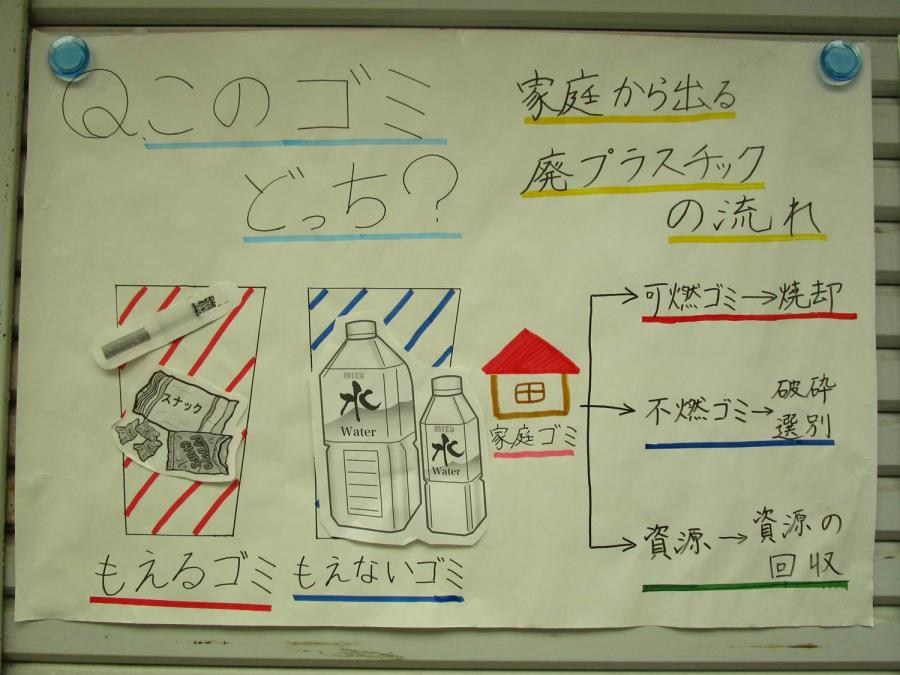 Q.このゴミ
どっち?
家庭から出る
廃プラスチック
の流れ
スナック
mizu
水
Water
mizu
水
Water
もえるゴミ
もえないゴミ
家庭ゴミ
可燃ゴミ→焼却
不燃ゴミ→破砕
選別
資源→資源の
回収